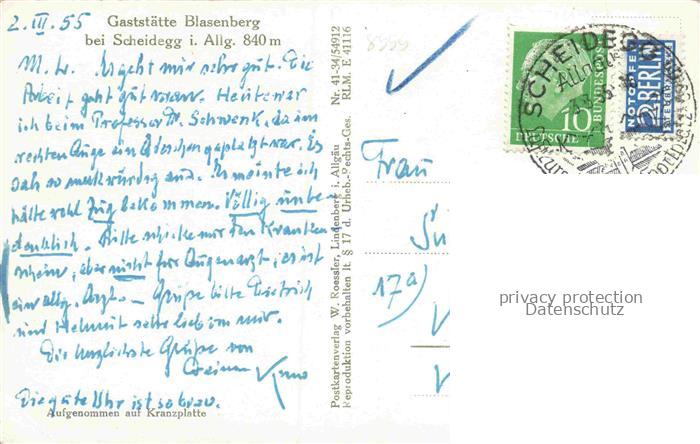 2. III. 55
Gaststätte Blasenberg
bei Scheidegg i. Allg. 840 m
M. L. Es geht mir sehr gut. Die
Arbeit geht gut voran. Heute war
ich beim Professor Dr. Schwenk, da im
rechten Auge ein Äderchen geplatzt war. Es
sah so merkwürdig aus. Er meinte ich
hätte wohl Zug bekommen. Völlig unbe-
denklich. Bitte schicke mir den Kranken
schein, aber nicht für Augenarzt, es ist
ein allg. Arzt. – Grüße bitte Dietrich
und Helmut sehr lieb von mir.
Die herzlichste Grüße von
Deinem
Die gute Uhr ist so brav.
Aufgenommen auf Kranzplatte
Postkartenverlag W. Roessler, Lindenberg i. Allgäu
Reproduktion vorbehalten lt. § 17 d. Urheb.-Rechts-Ges.
Nr. 41-34/54912
RLM. E 41116
8999
SCHEIDEGG
Allgäu
10
DEUTSCHE
BUNDESPOST
NOTOPFER
2
BERLIN
STEUERMARKE
Frau
17a)
privacy protection
Datenschutz